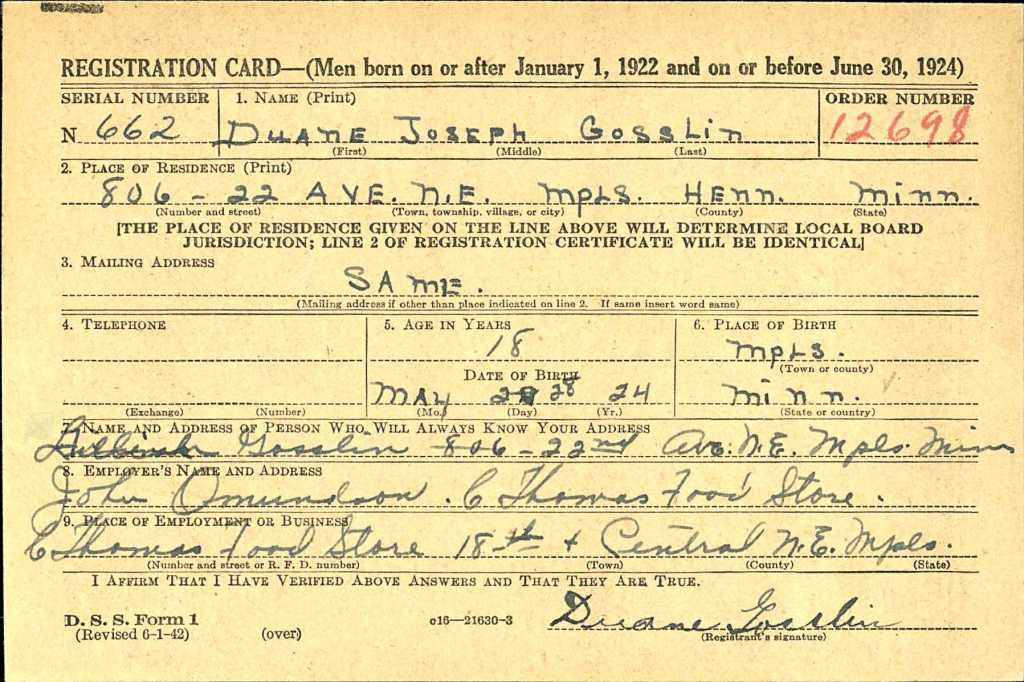 REGISTRATION CARD—(Men born on or after January 1, 1922 and on or before June 30, 1924)
SERIAL NUMBER 1. NAME (Print) ORDER NUMBER
N 662 DUANE JOSEPH GOSSLIN 12698
(First) (Middle) (Last)
2. PLACE OF RESIDENCE (Print)
806 - 22 AVE. N.E. MPLS. HENN. MINN.
(Number and street) (Town, township, village, or city) (County) (State)
[THE PLACE OF RESIDENCE GIVEN ON THE LINE ABOVE WILL DETERMINE LOCAL BOARD
JURISDICTION; LINE 2 OF REGISTRATION CERTIFICATE WILL BE IDENTICAL]
3. MAILING ADDRESS
SAME.
(Mailing address if other than place indicated on line 2. If same insert word same)
4. TELEPHONE 5. AGE IN YEARS 6. PLACE OF BIRTH
18 MPLS.
(Town or county)
DATE OF BIRTH
MAY 28 24 MINN.
(Exchange) (Number) (Mo.) (Day) (Yr.) (State or country)
7. NAME AND ADDRESS OF PERSON WHO WILL ALWAYS KNOW YOUR ADDRESS
Gosslin 806 - 22nd Ave. N.E. Mpls. Minn
8. EMPLOYER'S NAME AND ADDRESS
John Omundson. C Thomas Food Store.
9. PLACE OF EMPLOYMENT OR BUSINESS
C Thomas Food Store 18th + Central N.E. Mpls.
(Number and street or R. F. D. number) (Town) (County) (State)
I AFFIRM THAT I HAVE VERIFIED ABOVE ANSWERS AND THAT THEY ARE TRUE.
D. S. S. Form 1
(Revised 6-1-42) (over) c16—21630-3 Duane Gosslin
(Registrant's signature)